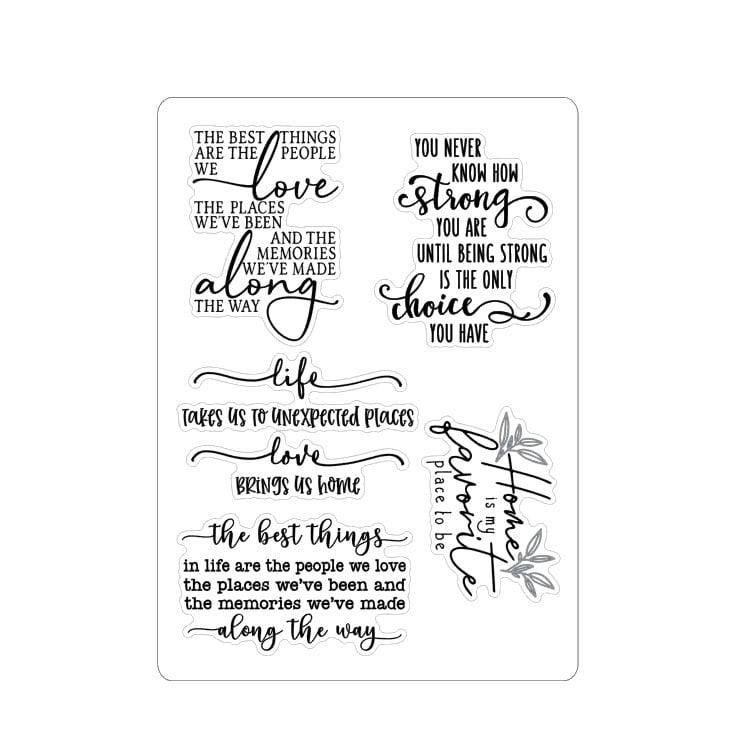 THE BEST THINGS
ARE THE PEOPLE
WE love
THE PLACES
WE'VE BEEN
AND THE
MEMORIES
WE'VE MADE
along
THE WAY
YOU NEVER
KNOW HOW
strong
YOU ARE
UNTIL BEING STRONG
IS THE ONLY
choice
YOU HAVE
life
TAKES US TO UNEXPECTED PLACES
love
BRINGS US HOME
Home
is my
favorite
place to be
the best things
in life are the people we love
the places we've been and
the memories we've made
along the way